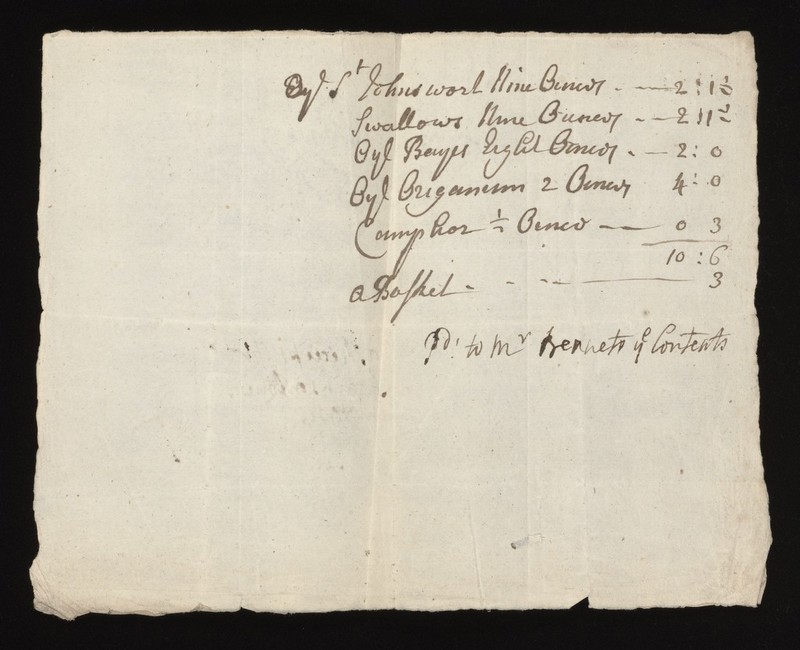 Oyl St Johns wort Nine Ounces - — 2 : 1½
Swallows Nine Ounces - — 2 : 1½
Oyl Bayes Eight Ounces - — 2 : 0
Oyl Origanum 2 Ounces 4 : 0
Camphor ½ Ounce — 0 3
10 : 6
a Basket - - - — 3
Pd to Mr Bennets ye Contents